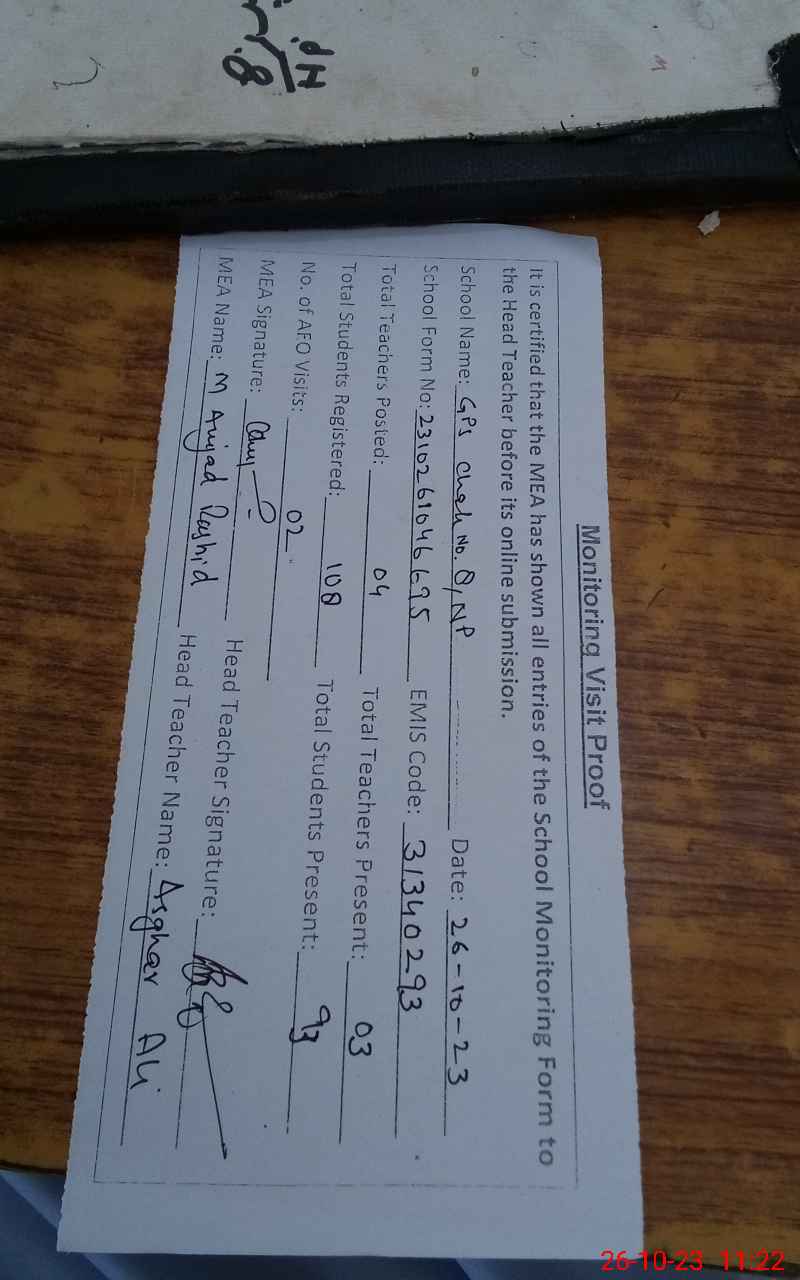 Monitoring Visit Proof
It is certified that the MEA has shown all entries of the School Monitoring Form to
the Head Teacher before its online submission.
School Name: GPS Chak No. 8/NP Date: 26-10-23
School Form No: 231026104669S EMIS Code: 31340293
Total Teachers Posted: 04 Total Teachers Present: 03
Total Students Registered: 108 Total Students Present: 93
No. of AEO Visits: 02
MEA Signature: Head Teacher Signature:
MEA Name: M Amjad Rashid Head Teacher Name: Asghar Ali
26-10-23 11:22